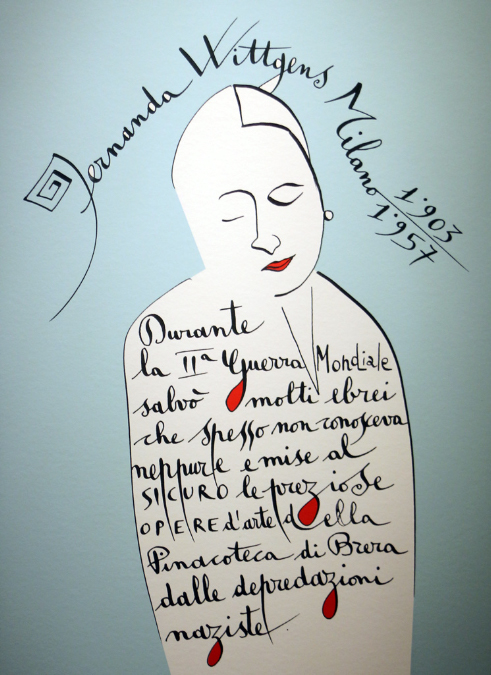 Fernanda Wittgens Milano
1.903
1.957
Durante
la IIª Guerra Mondiale
salvò molti ebrei
che spesso non conosceva
neppure e mise al
SICURO le preziose
OPERE d'arte della
Pinacoteca di Brera
dalle depredazioni
naziste.